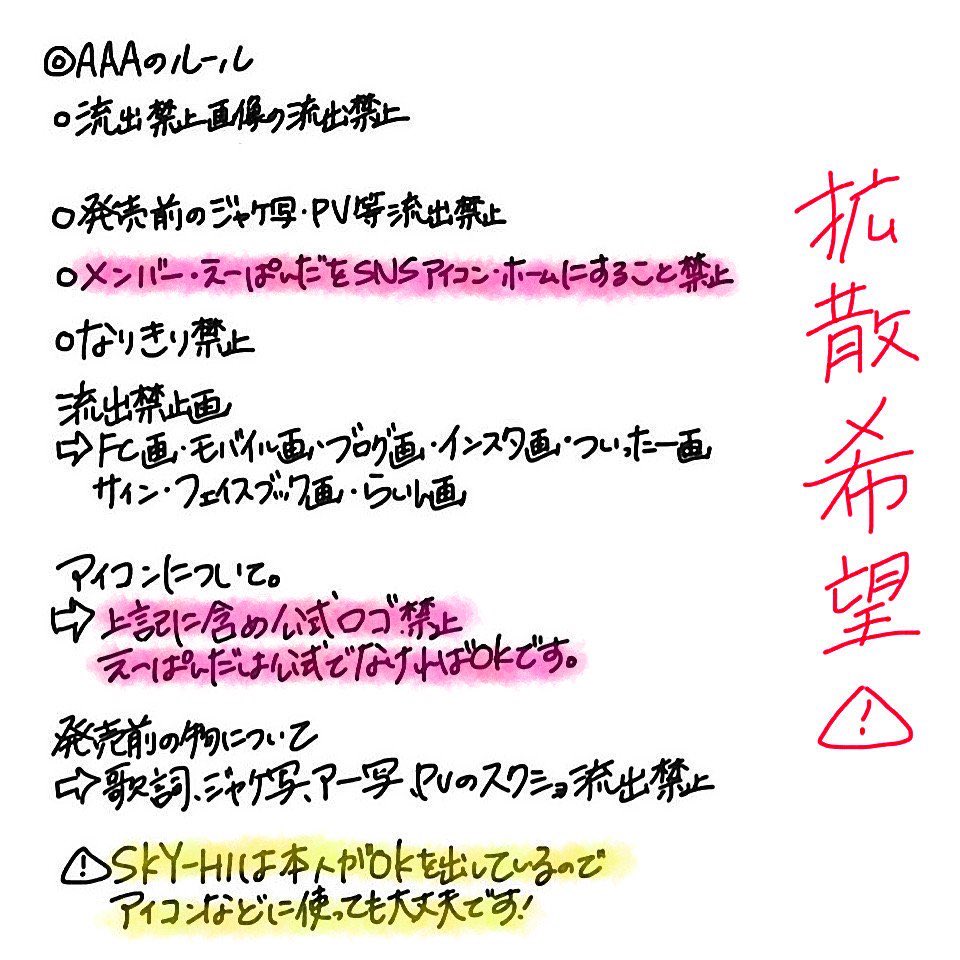 ◎AAAのルール
○流出禁止画像の流出禁止
○発売前のジャケ写・PV等流出禁止
○メンバー・えーぱんだをSNSアイコン・ホームにすること禁止
○なりきり禁止
流出禁止画
⇨FC画・モバイル画・ブログ画・インスタ画・ついったー画
サイン・フェイスブック画・らいん画
アイコンについて。
⇨上記に含め公式ロゴ禁止
えーぱんだは公式でなければOKです。
発売前の物について
⇨歌詞、ジャケ写、アー写、PVのスクショ流出禁止
⚠SKY-HIは本人がOKを出しているので
アイコンなどに使っても大丈夫です!
拡散希望⚠